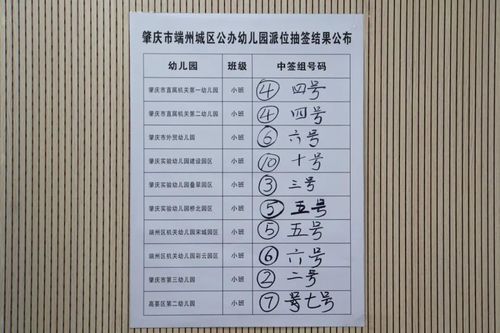 肇庆市端州城区公办幼儿园派位抽签结果公布
幼儿园 班级 中签组号码
肇庆市直属机关第一幼儿园 小班 ④ 四号
肇庆市直属机关第二幼儿园 小班 ④ 四号
肇庆市外贸幼儿园 小班 ⑥ 六号
肇庆实验幼儿园建设园区 小班 ⑩ 十号
肇庆实验幼儿园叠翠园区 小班 ③ 三号
肇庆实验幼儿园桥北园区 小班 ⑤ 五号
端州区机关幼儿园宋城园区 小班 ⑤ 五号
端州区机关幼儿园彩云园区 小班 ⑥ 六号
肇庆市第三幼儿园 小班 ② 二号
高要区第二幼儿园 小班 ⑦ 号七号